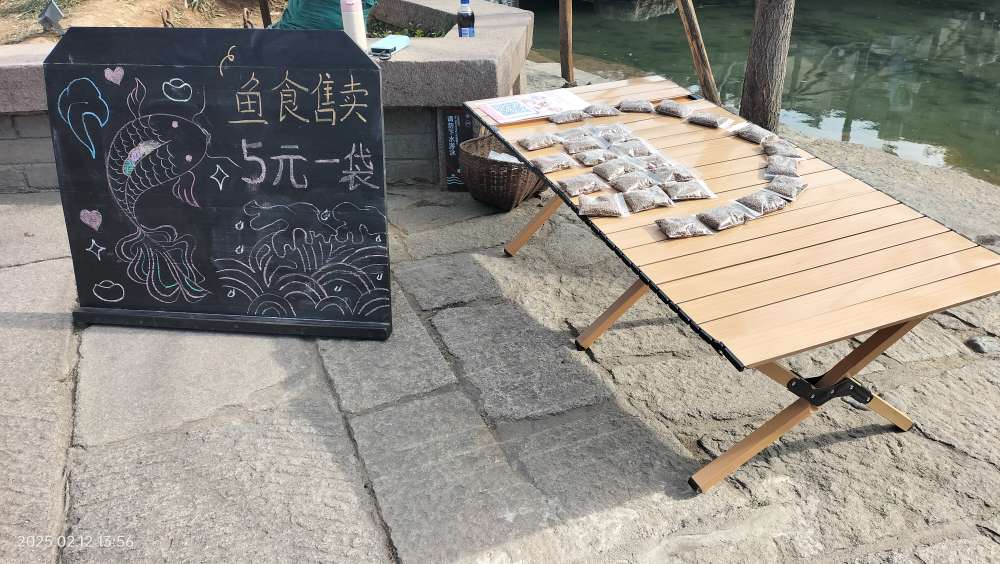 鱼食售卖
5元一袋
2025.02.12 13:56